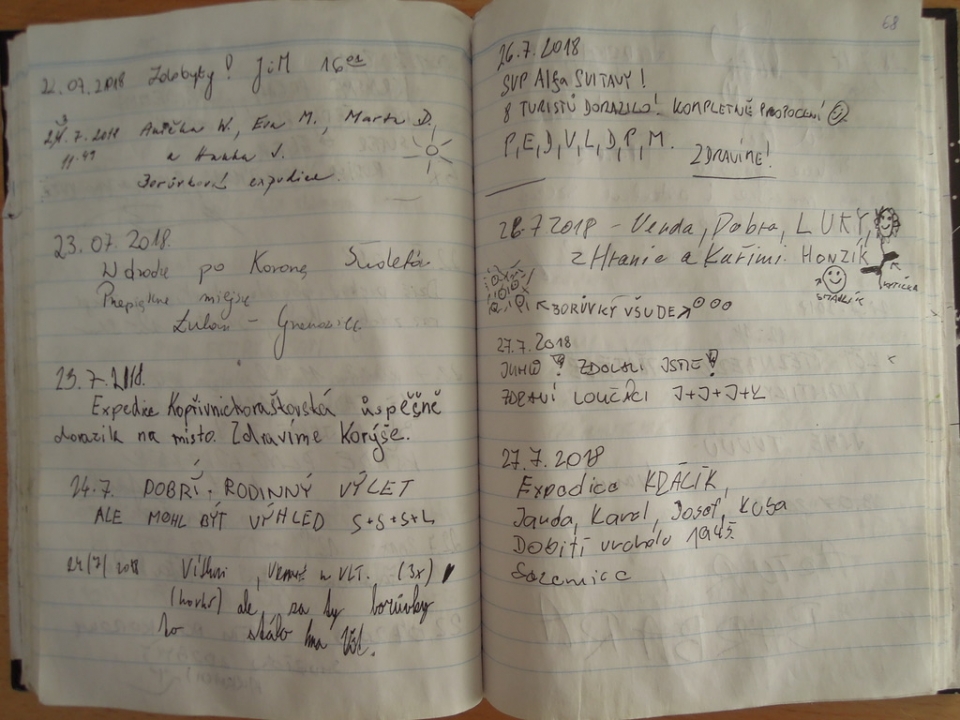 22.07.2018 Zdobyty! JiM
7.2018 Anička W., Eva M., Marta D.
11.49 a Hanka J.
Borůvková expedice.
23.07.2018.
W drodze po Koronę Sudetów
Przepiękne miejsce
Lubań -
23.7.2018.
Expedice Kopřivnickoraštovská úspěšně
dorazila na místo. Zdravíme Korýše.
24.7. DOBRÝ, RODINNÝ VÝLET
ALE MOHL BÝT VÝHLED S+S+S+L
24/7/2018 (3x)
(horko) ale za ty borůvky
to stálo
68
26.7.2018
SVP Alfa SVITAVY!
8 TURISTŮ DORAZILO! KOMPLETNĚ PROPOCENÍ
P, E, D, V, L, D, P, M.
ZDRAVÍME!
26.7.2018 - Venda, Dobra, LUKY,
z Hranic a Kuřimi HONZÍK
SMAJLÍK
KYTIČKA
BORŮVKY VŠUDE
27.7.2018
JUHŮ! ZDOLALI JSME!
ZDRAVÍ LOUČÁCI J+J+J+Ł
27.7.2018
Expedice KRÁLÍK
Janda, Karel, Josef, Kuba
Dobití vrcholu 1945.